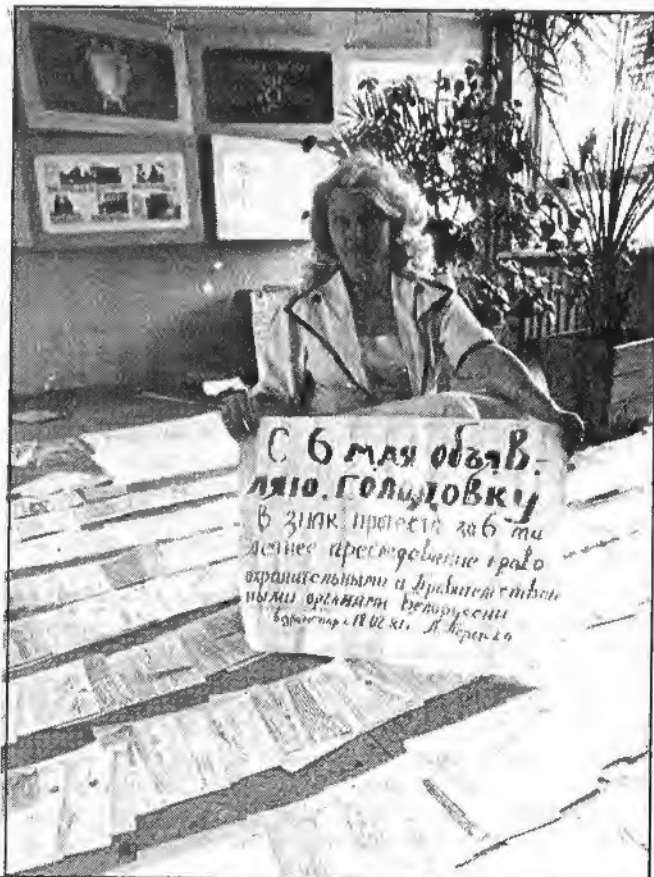 С 6 мая объяв-
ляю. голодовку
В знак протеста за 6 ти
летнее преследование право
охранительными и правительствен
ными органами Белоруссии
с 18.02.81г.